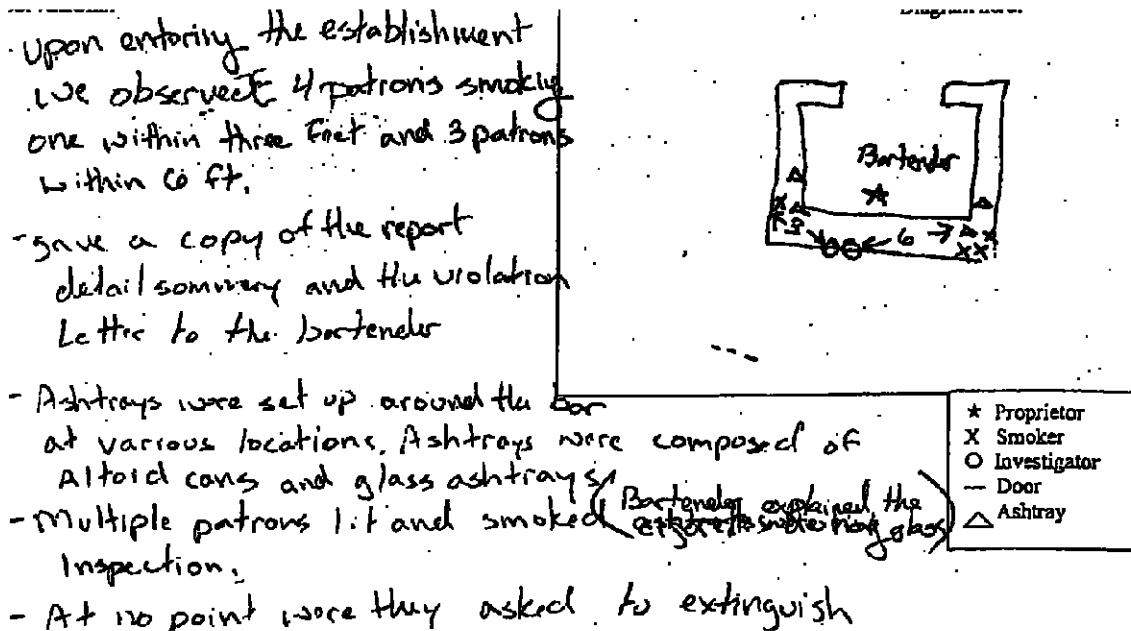 - upon entering the establishment
we observed 4 patrons smoking
one within three feet and 3 patrons
within 6 ft.
- gave a copy of the report
detail sommery and the violation
Letter to the bartender
- Ashtrays were set up around the bar
at various locations. Ashtrays were composed of
Altoid cans and glass ashtrays
- Multiple patrons lit and smoked
(Bartender explained the
glass)
Inspection.
- At no point were they asked to extinguish
Bartender
3
6
★ Proprietor
X Smoker
O Investigator
— Door
△ Ashtray